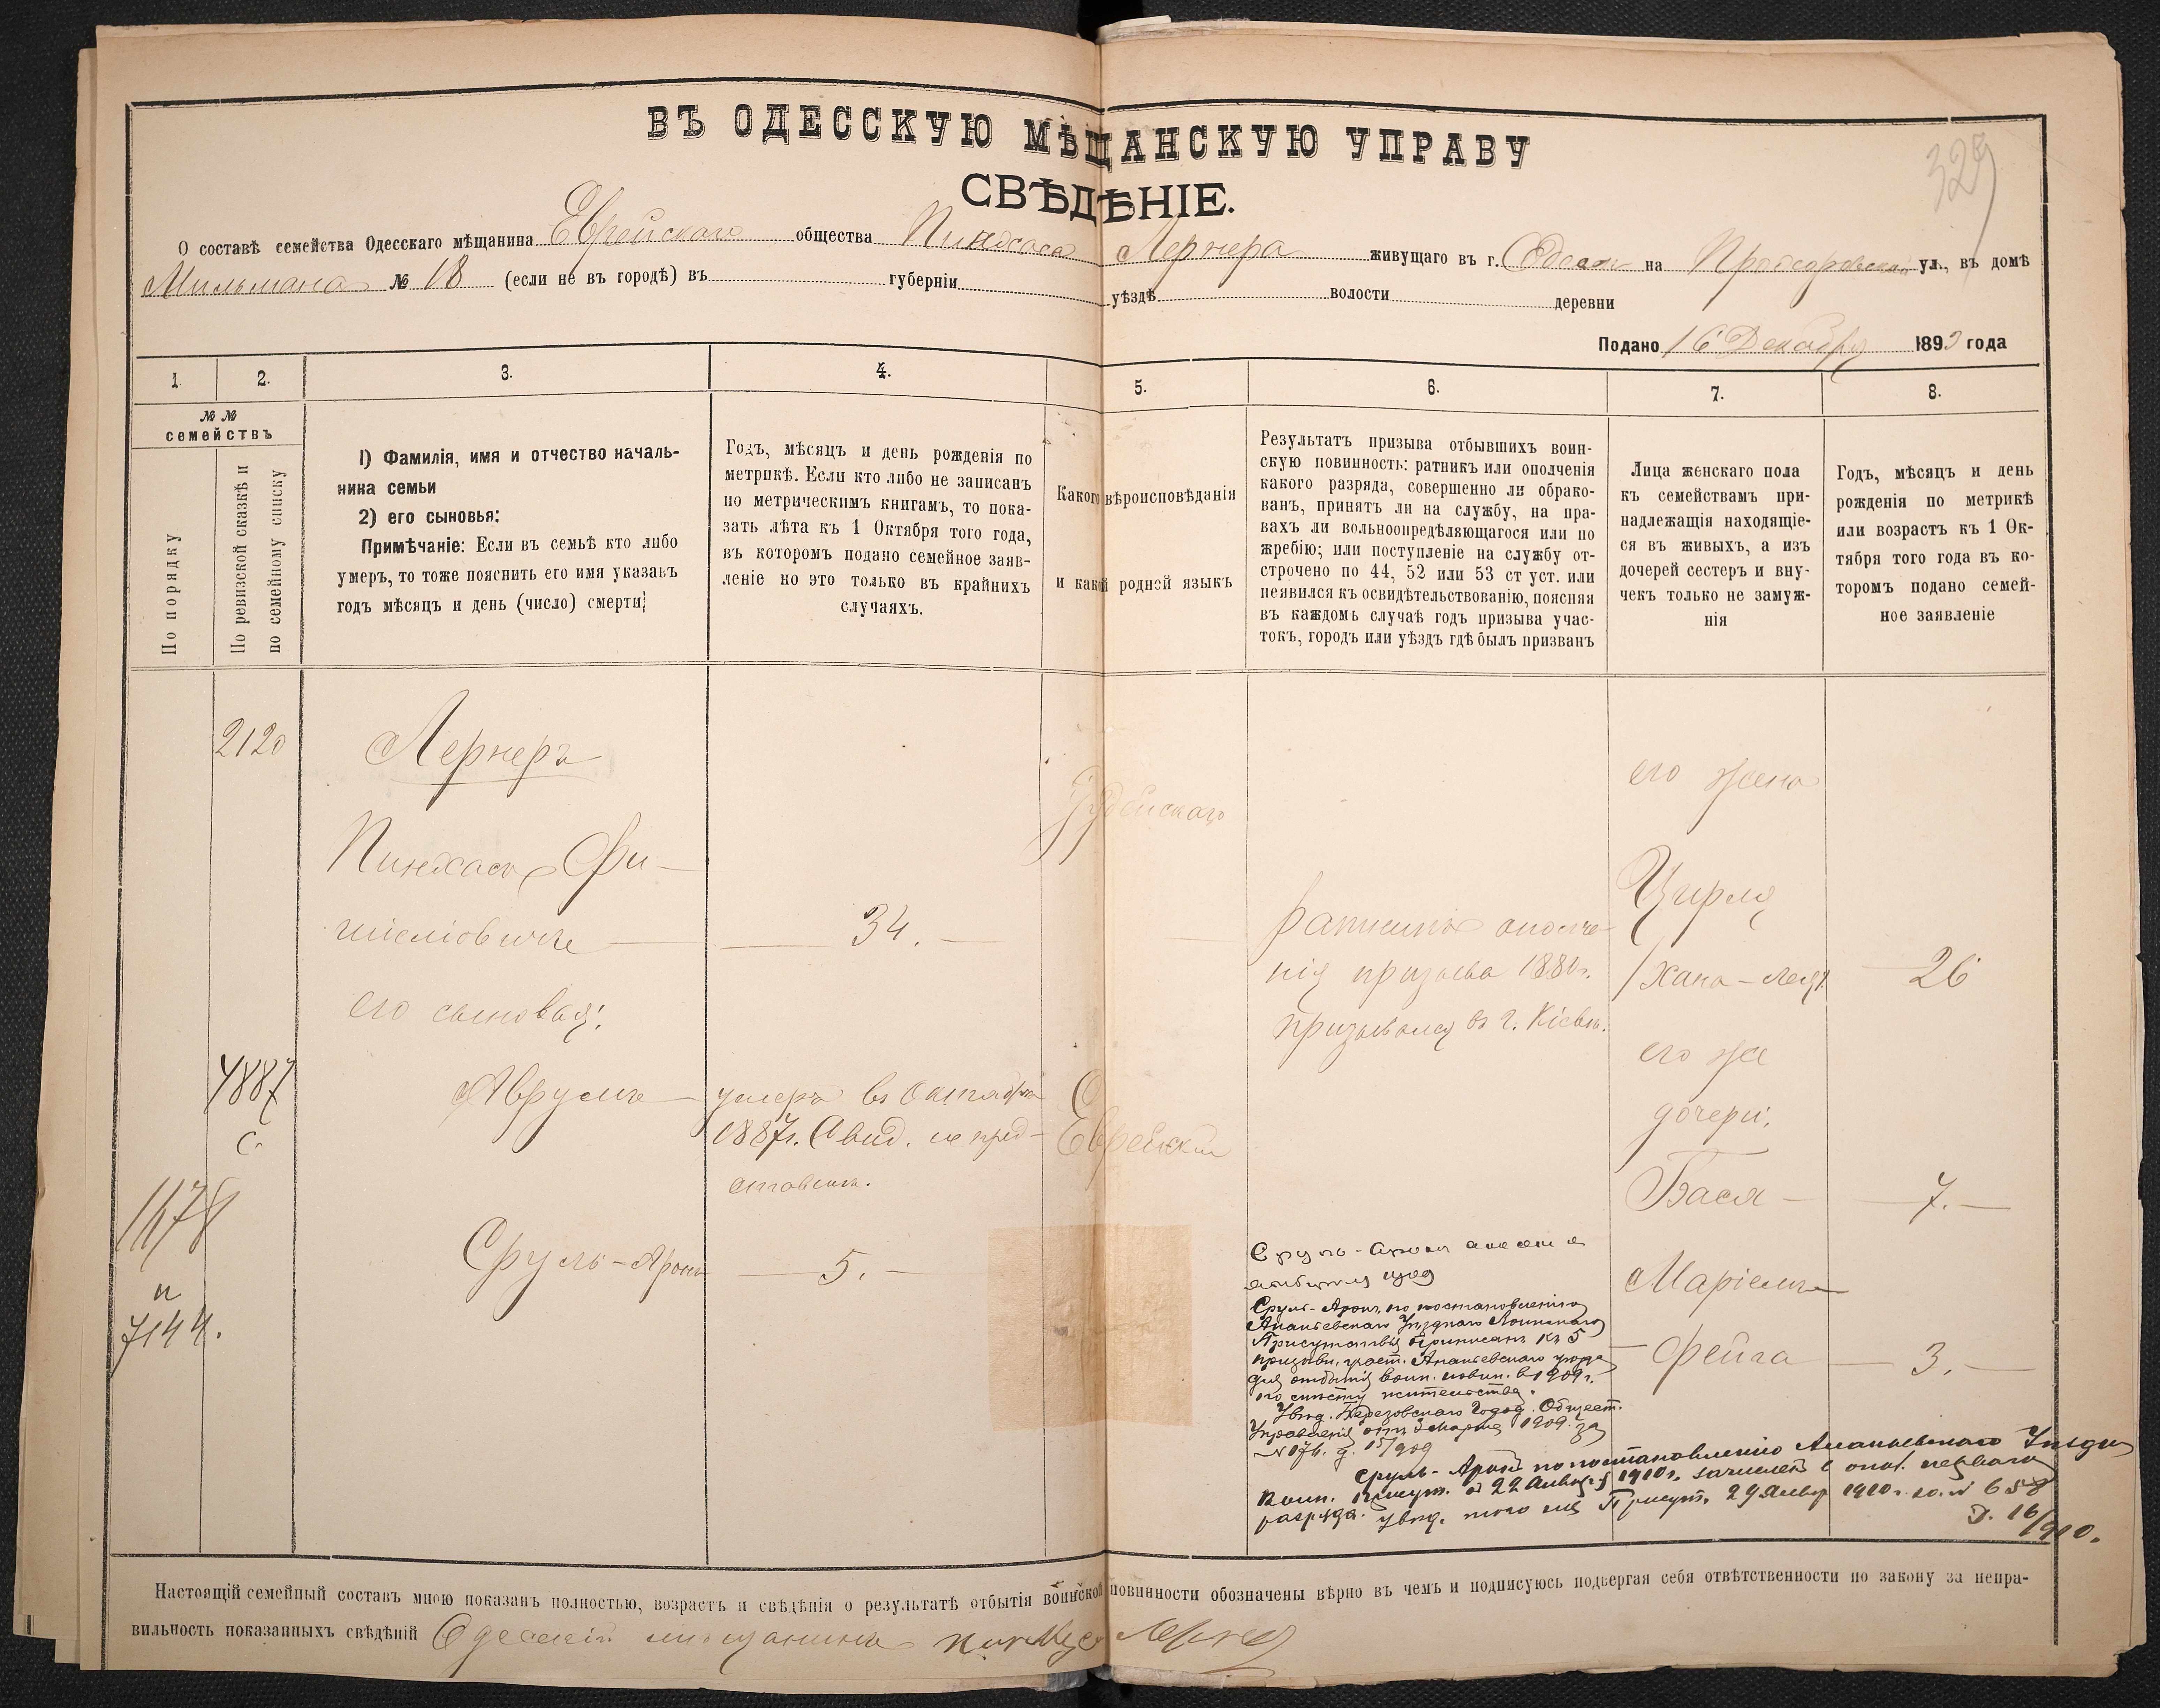 329
ВЪ ОДЕССКУЮ МѢЩАНСКУЮ УПРАВУ
СВѢДѢНІЕ.
О составѣ семейства Одесскаго мѣщанина Еврейскаго общества Пинхоса Лернера живущаго въ г. Одессѣ на Прохоровской ул., въ домѣ
Мильмана № 18 (если не въ городѣ) въ губерніи уѣздѣ волости деревни
Подано 16 Декабря 1893 года
1. 2. 3. 4. 5. 6. 7. 8.
№ №
семействъ
По порядку
По ревизской сказкѣ и
по семейному списку
1) Фамилія, имя и отчество началь-
ника семьи
2) его сыновья:
Примѣчаніе: Если въ семьѣ кто либо
умеръ, то тоже пояснить его имя указавъ
годъ мѣсяцъ и день (число) смерти;
Годъ, мѣсяцъ и день рожденія по
метрикѣ. Если кто либо не записанъ
по метрическимъ книгамъ, то пока-
зать лѣта къ 1 Октября того года,
въ которомъ подано семейное заяв-
леніе но это только въ крайнихъ
случаяхъ.
Какого вѣроисповѣданія
и какой родной языкъ
Результатъ призыва отбывшихъ воин-
скую повинность: ратникъ или ополченія
какого разряда, совершенно ли обрако-
ванъ, принятъ ли на службу, на пра-
вахъ ли вольноопредѣляющагося или по
жребію; или поступленіе на службу от-
строчено по 44, 52 или 53 ст уст. или
неявился къ освидѣтельствованію, поясняя
въ каждомъ случаѣ годъ призыва учас-
токъ, городъ или уѣздъ гдѣ былъ призванъ
Лица женскаго пола
къ семействамъ при-
надлежащія находящіе-
ся въ живыхъ, а изъ
дочерей сестеръ и вну-
чекъ только не замуж-
нія
Годъ, мѣсяцъ и день
рожденія по метрикѣ
или возрастъ къ 1 Ок-
тября того года въ ко-
торомъ подано семей-
ное заявленіе
2120
4887
С.
1178
и
7144.
Лернеръ
Пинхасъ Фи-
шелiовичъ
его сыновья:
Аврумъ
Сруль-Аронъ
34.
умеръ въ Октябрѣ
1887г. Свид. не пред-
ставлен.
5.
Іудейскаго
Еврейскій
Ратникъ ополче-
нія призыва 1880г.
призывался въ г. Кіевѣ.
Сруль-Аронъ
Сруль-Аронъ, по постановленію
Ананьевскаго Уѣзднаго Воинскаго
Присутствія приписанъ къ 5
призывн. участ. Ананьевскаго уѣзда
для отбытія воин. повин. въ 1909 г.
по мѣсту жительства.
Увѣд. Березовскаго Город. Общест.
Управленія отъ 3 Марта 1909 г. за
№ 176. д. 15/909
Сруль-Аронъ по постановленію Ананьевскаго Уѣздн.
Воин. Присут. от 22 Января 1910 г. зачисленъ в опол. перваго
разряда. Увѣд. того же Присут. 29 Январ 1910 г. за № 658
Д. 16/910.
его жена
Цирля
/Хана-Лея/
его же
дочери:
Бася
Маріемъ
Фейга
26
7.
3.
Настоящій семейный составъ мною показанъ полностью, возрастъ и свѣдѣнія о результатѣ отбытія воинской повинности обозначены вѣрно въ чемъ и подписуюсь подвергая себя отвѣтственности по закону за непра-
вильность показанныхъ свѣдѣній Одесскій мѣщанинъ Пинхус Лернер